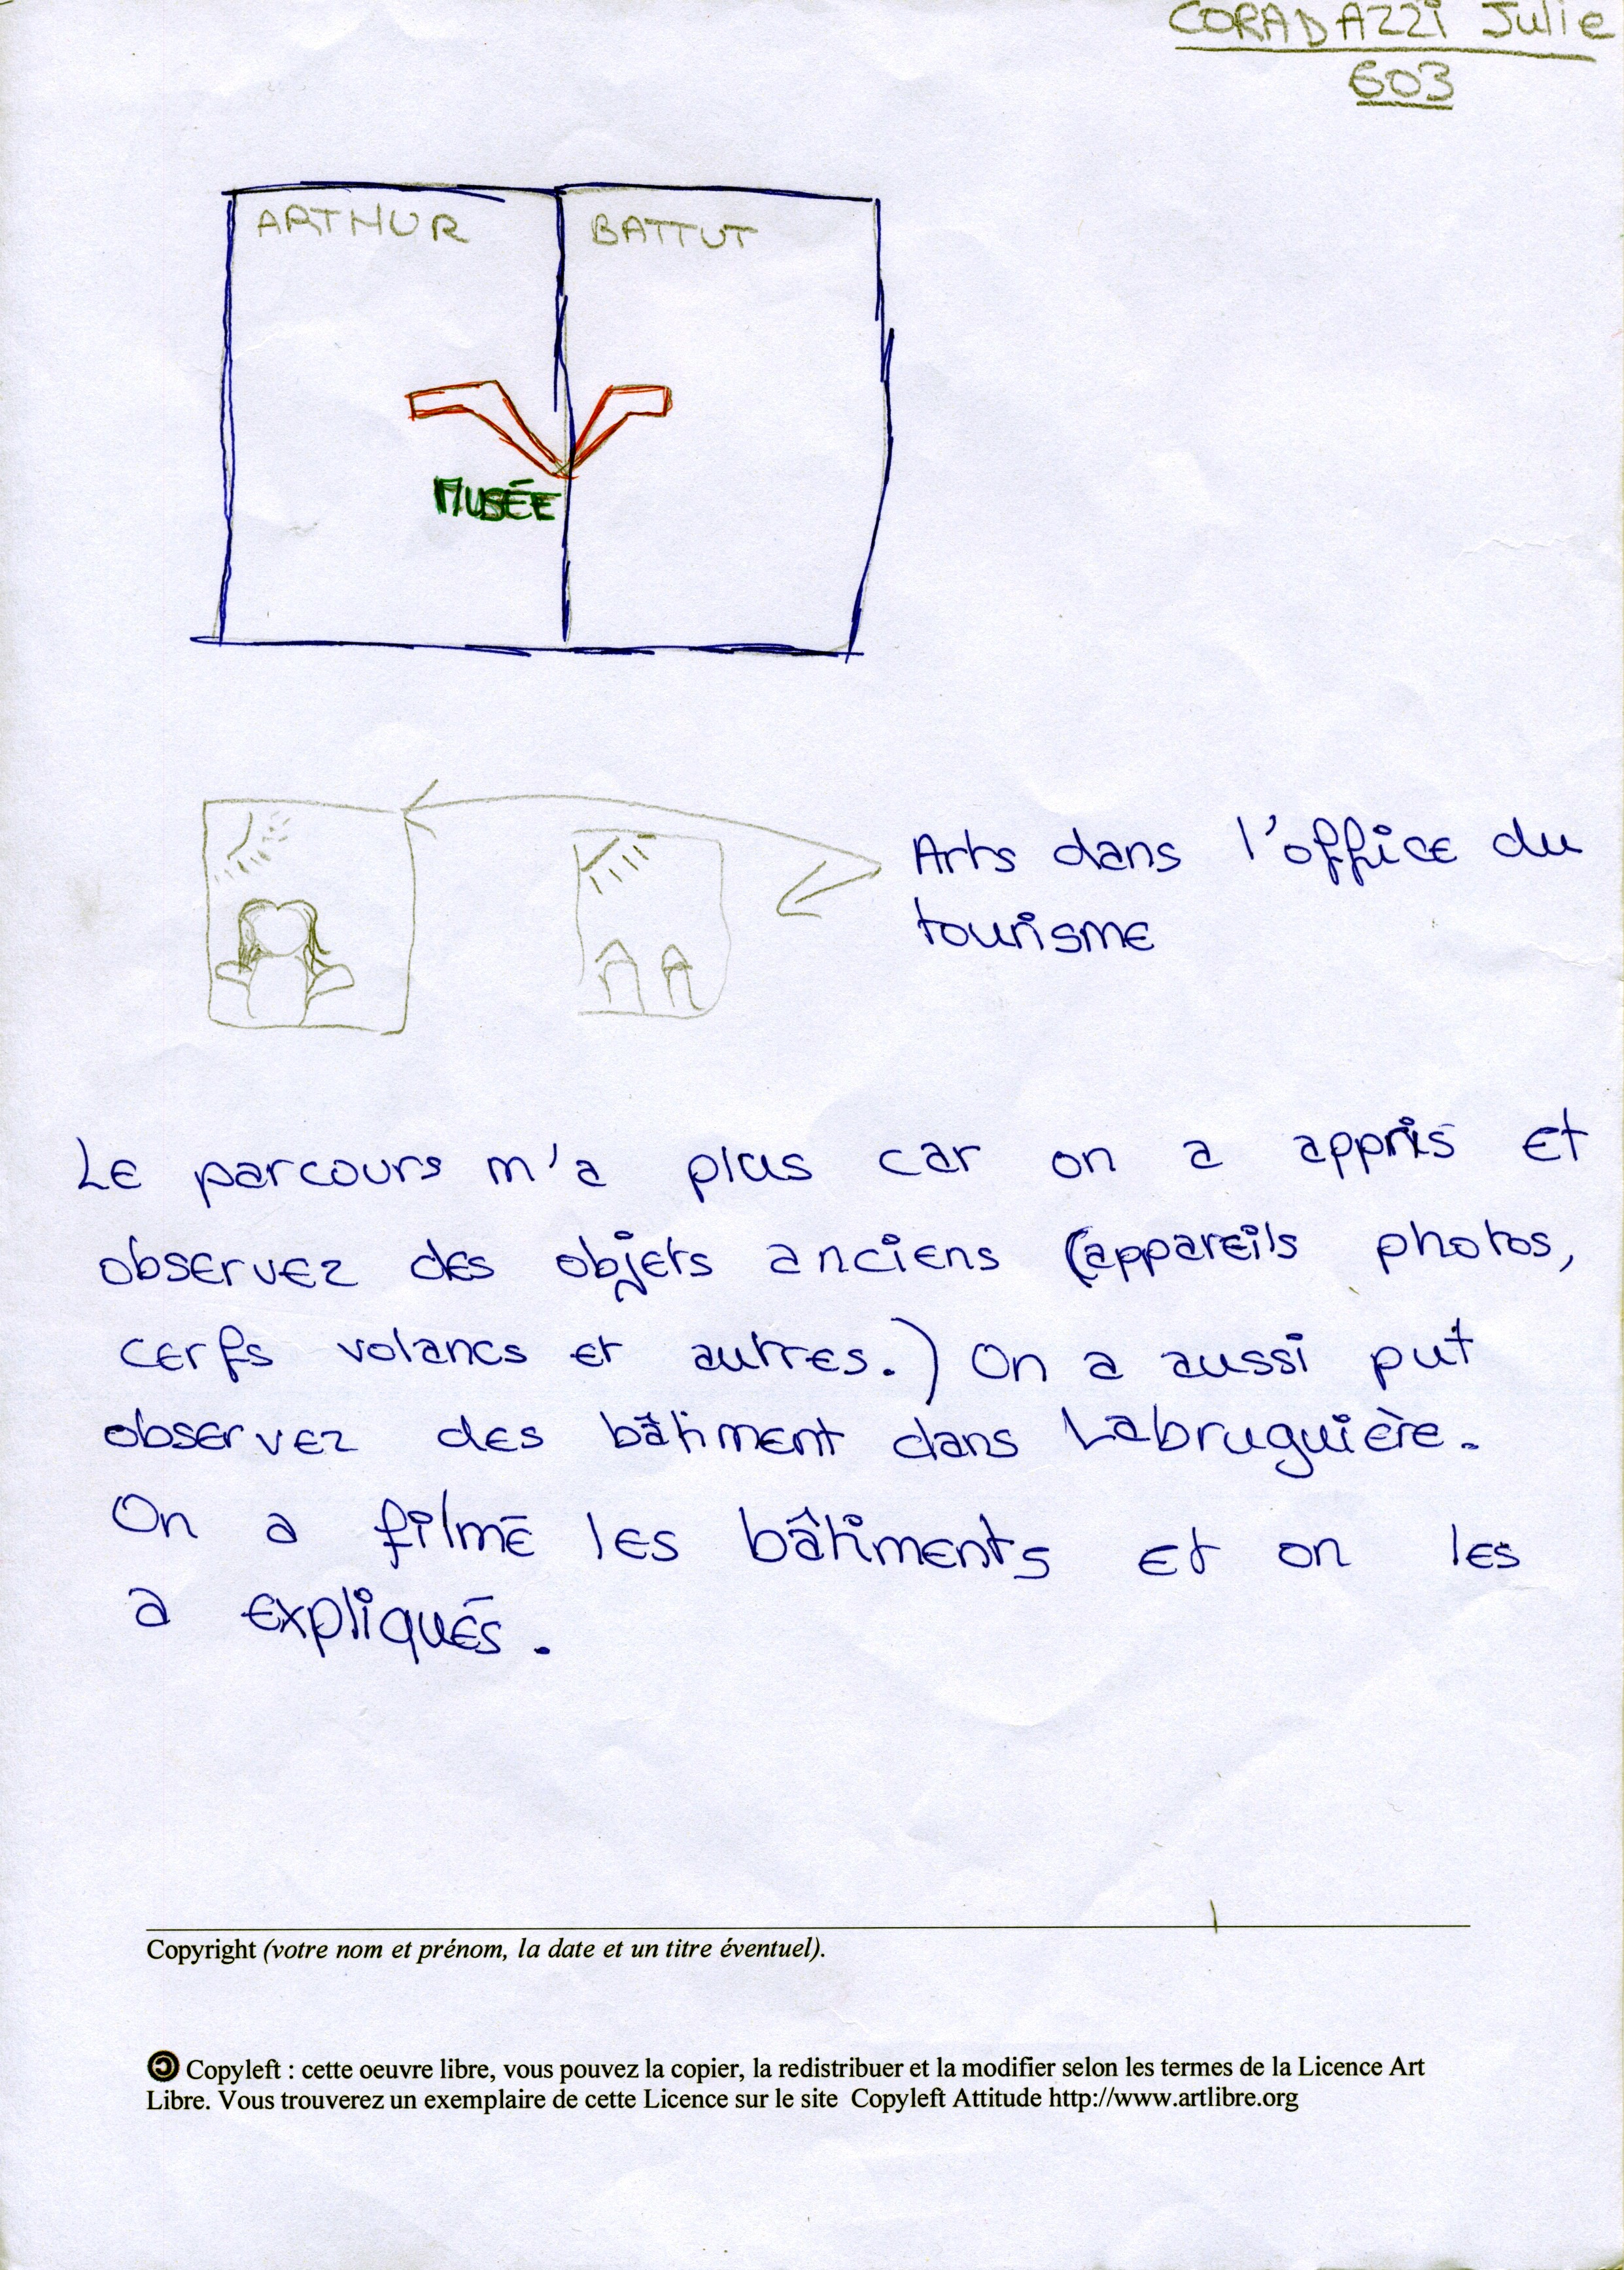 CORADAZZI Julie
603
ARTHUR BATTUT
MUSÉE
Arts dans l'office du
tourisme
Le parcours m'a plus car on a appris et
observez des objets anciens (appareils photos,
cerfs volancs et autres.) On a aussi put
observez des bâtiment dans Labruguière.
On a filmé les bâtiments et on les
a expliqués.
Copyright (votre nom et prénom, la date et un titre éventuel).
Copyleft : cette oeuvre libre, vous pouvez la copier, la redistribuer et la modifier selon les termes de la Licence Art
Libre. Vous trouverez un exemplaire de cette Licence sur le site Copyleft Attitude http://www.artlibre.org